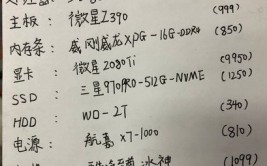 主板：微星Z390 (999)
内存条：威刚威龙XPG-16G-DDR4 (850)
显卡：微星2080Ti (9950)
SSD：三星970PRO-512G-NVME (1250)
HDD：WD-2T (340)
电源：航嘉X7-1000 (810)
冰神 (1099)